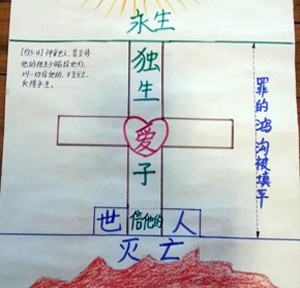 永生
[约3:16] 神爱世人，甚至将
他的独生子赐给他们，
叫一切信他的，不至灭亡，
反得永生。
独生
爱
子
罪的鸿沟被填平
世 信他的 人
灭亡